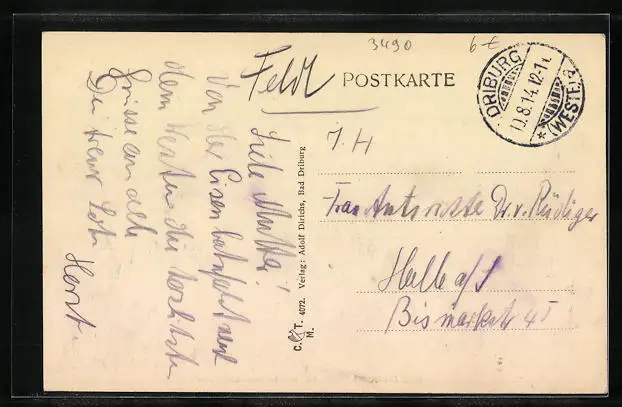 3490
6 €
Feld POSTKARTE
DRIBURG
10.8.14.12-1 N.
* (WESTF.) *
Liebe Mutter!
Von der Eisenbahnfahrt nach
dem Westen die herzlichsten
Grüsse an alle
Dein treuer
Horst.
C. & T. 4072. Verlag: Adolf Dirichs, Bad Driburg
M.
J. H
Frau Dr. v. Rüdiger
Halle a/S
Bismarckst 45